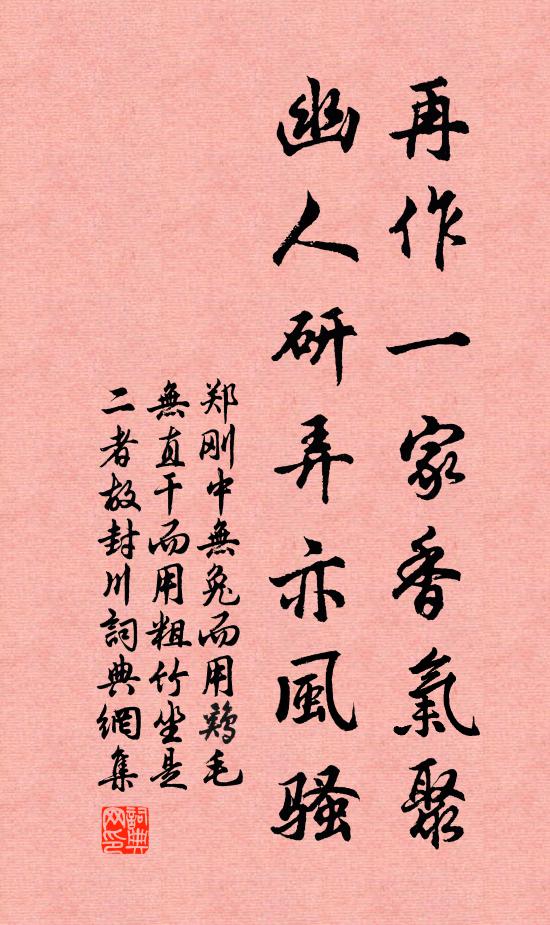 再作一家香氣聚
幽人研弄亦風騷
郑刚中無兔而用鷄毛
無直干而用粗竹坐是
二者故封川詞典網集
詞典
网印